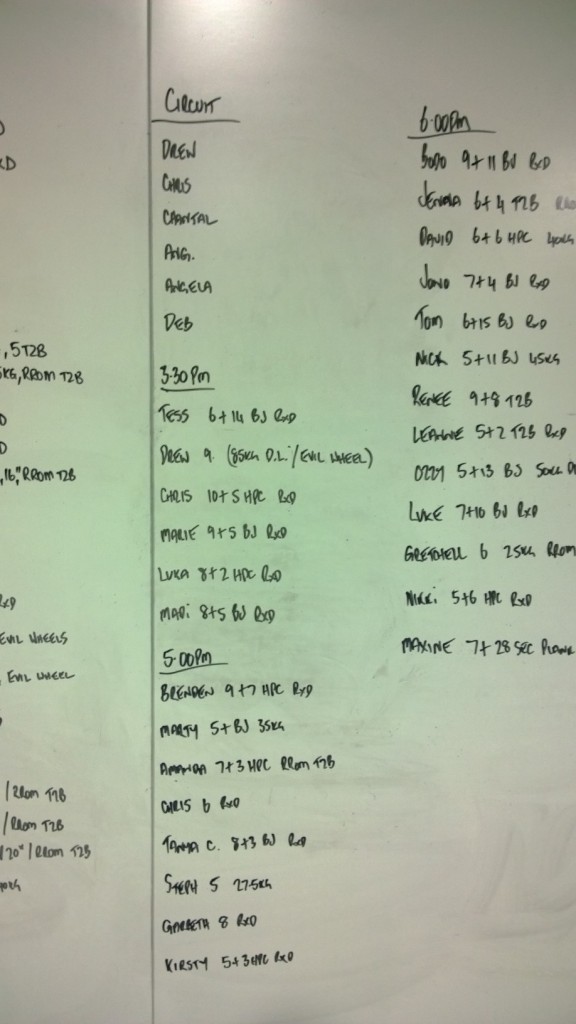 , 5 T2B
KG, RROM T2B
, 16", RROM T2B
RXD
EVIL WHEELS
, EVIL WHEEL
/ RROM T2B
/ RROM T2B
/20" / RROM T2B
CIRCUIT
DREW
CHRIS
CHANTAL
ANG.
ANGELA
DEB
3.30 Pm
TESS 6+14 BJ RXD
DREW 9 (85KG D.L. / EVIL WHEEL)
CHRIS 10+5 HPC RXD
MARIE 9+5 BJ RXD
LUKA 8+2 HPC RXD
MARI 8+5 BJ RXD
5.00Pm
BRENDEN 9+7 HPC RXD
MARTY 5+ BJ 35KG
AMANDA 7+3 HPC RROM T2B
CHRIS 6 RXD
TANYA C. 8+3 BJ RXD
STEPH 5 27.5KG
GARBETH 8 RXD
KIRSTY 5+3 HPC RXD
6.00Pm
BODO 9+11 BJ RXD
JENNA 6+4 T2B
DAVID 6+6 HPC 40KG
JONO 7+4 BJ RXD
TOM 6+15 BJ RXD
NICK 5+11 BJ 45KG
RENEE 9+8 T2B
LEANNE 5+2 T2B RXD
OZZY 5+13 BJ
LUKE 7+10 BJ RXD
GRETCHELL 6 25KG RROM
NIKKI 5+6 HPC RXD
MAXINE 7+28 SEC PLANK